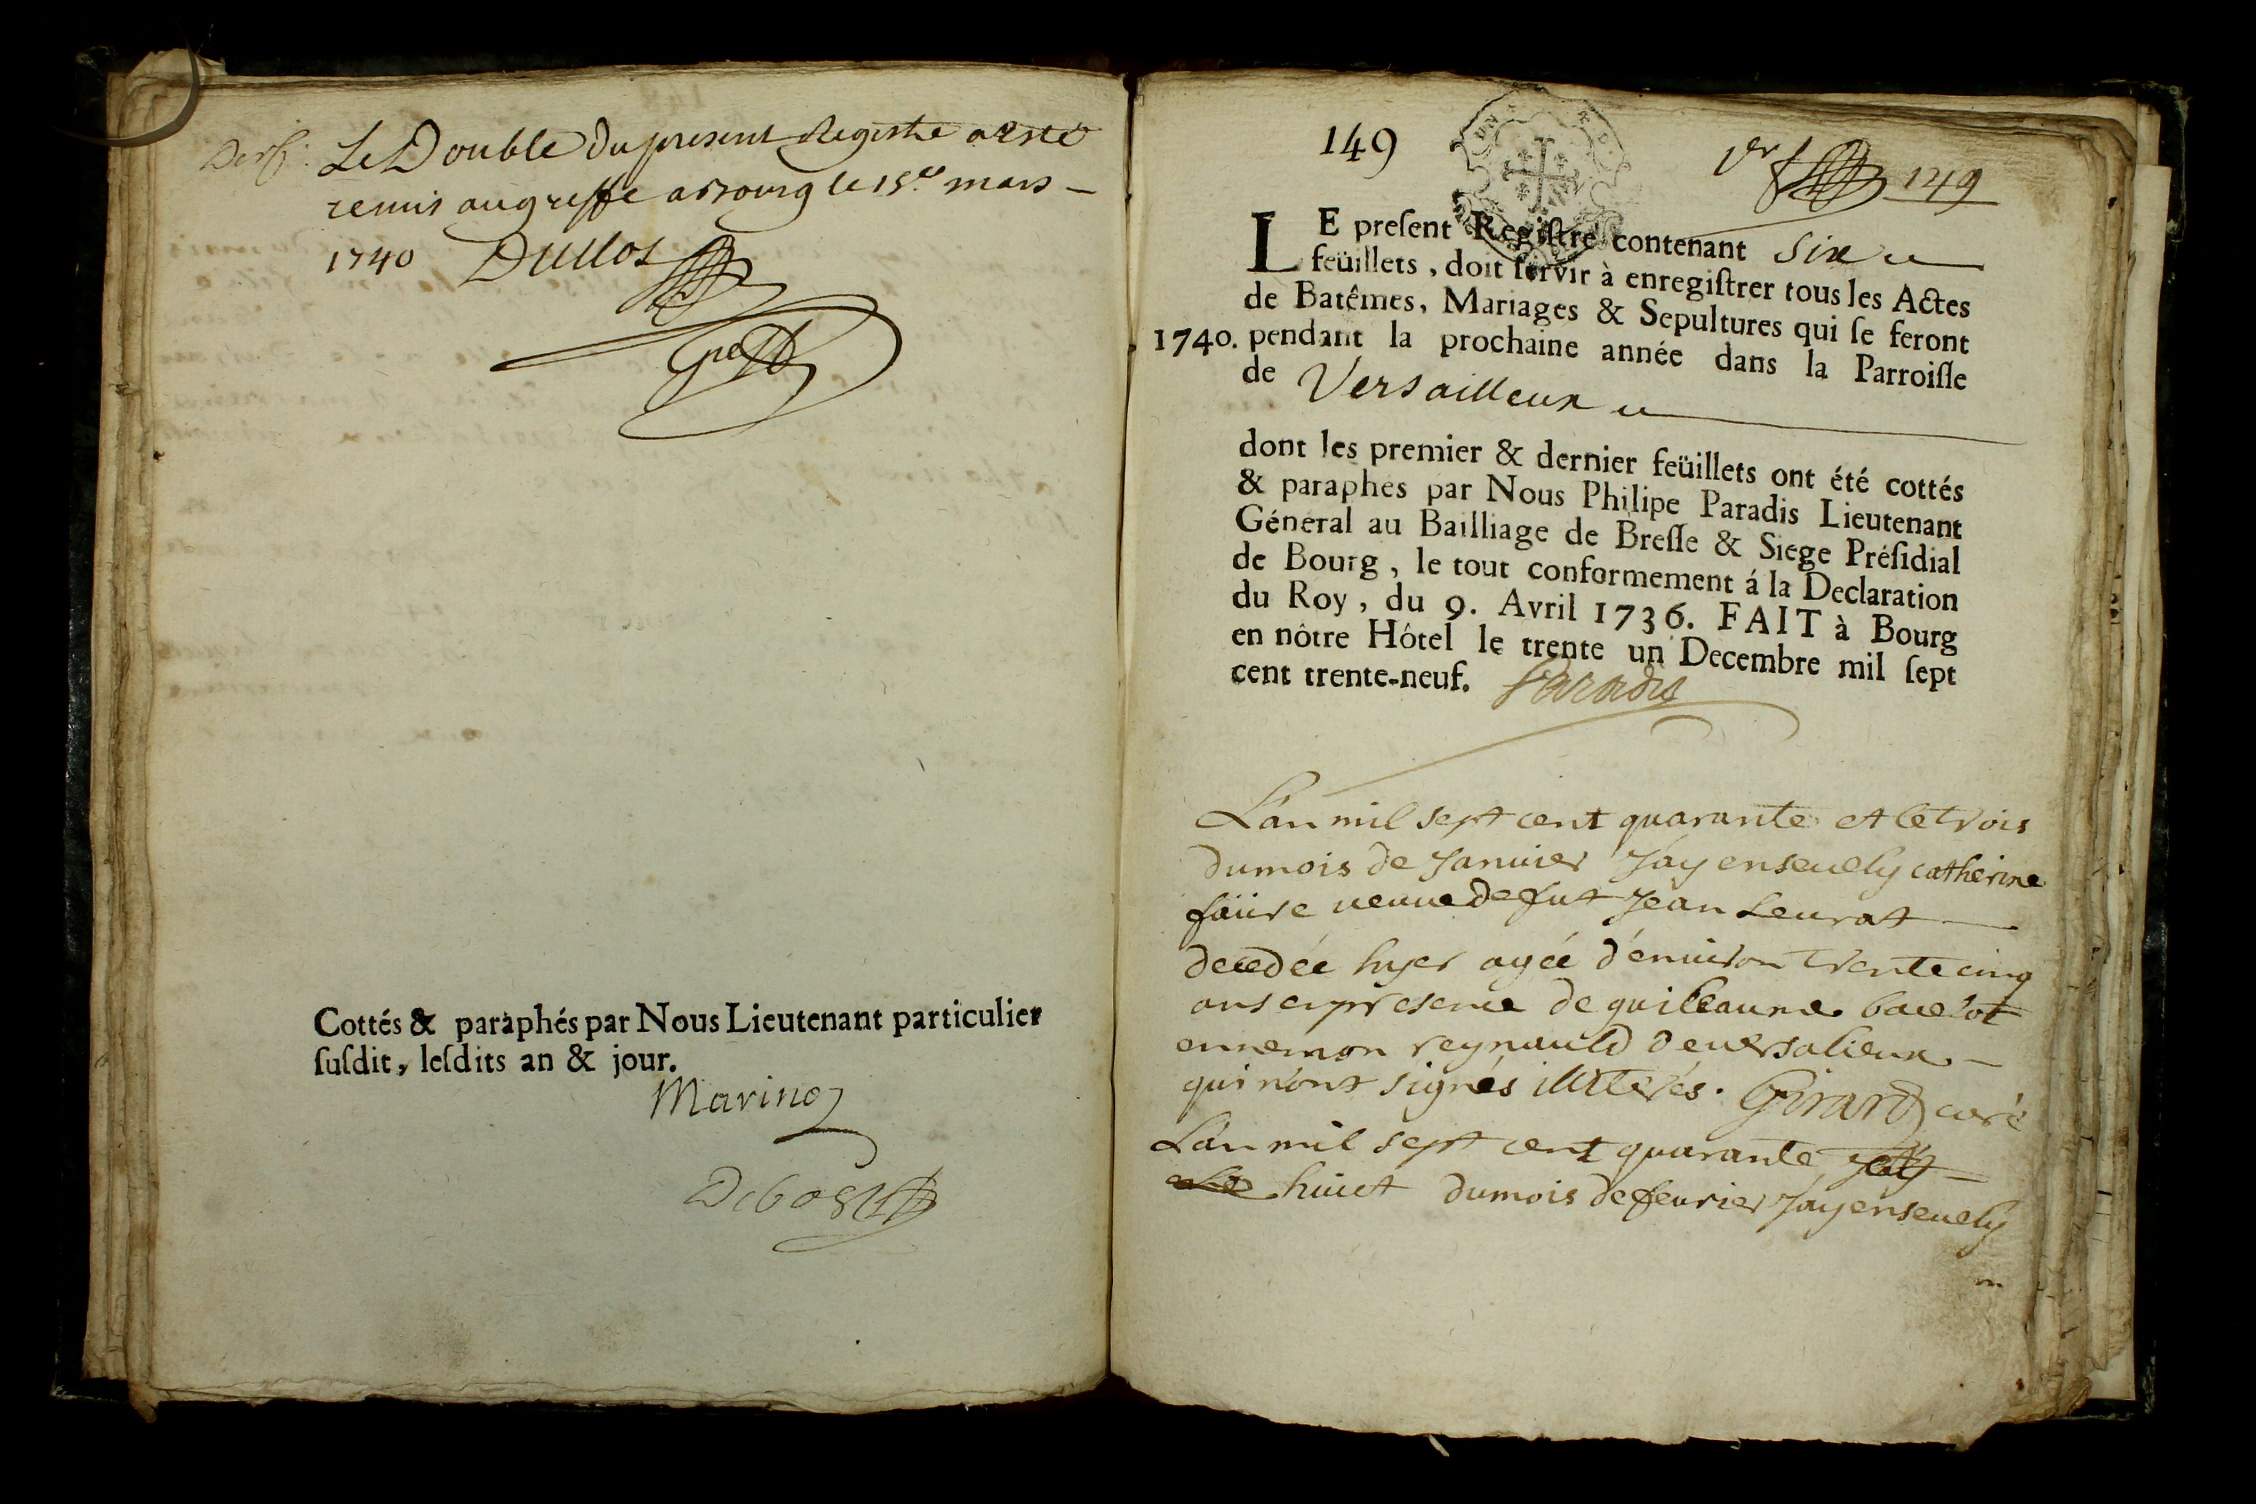 Le Double du present Registre a esté
remis au greffe a Bourg le 15.e mars
1740 Dullos
Cottés & paraphés par Nous Lieutenant particulier
ſuſdit, leſdits an & jour.
Marinoz
Debost
149
1er 149
LE preſent Regiſtre contenant Six
feüillets, doit ſervir à enregiſtrer tous les Actes
de Batêmes, Mariages & Sepultures qui ſe feront
1740. pendant la prochaine année dans la Parroiſſe
de Versailleux
dont les premier & dernier feüillets ont été cottés
& paraphés par Nous Philipe Paradis Lieutenant
Géneral au Bailliage de Breſſe & Siege Préſidial
de Bourg, le tout conformement á la Declaration
du Roy, du 9. Avril 1736. FAIT à Bourg
en nôtre Hôtel le trente un Decembre mil ſept
cent trente-neuf. Paradis
L'an mil sept cent quarante et le trois
du mois de Janvier J'ay ensevely catherine
faüre veuve de fut Jean Leurat
decedée hyer agée d'environ trente cinq
ans en presence de guilleaume
ennemon reynauld de versalieux
qui n'ont signés illiterés. Girard curé
L'an mil sept cent quarante
huict du mois de fevrier J'ay ensevely